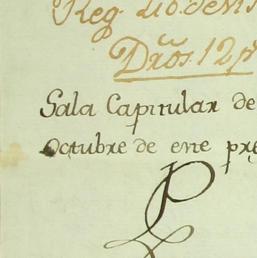 Reg.
Dros. 12 p
Sala Capitular de
Octubre de este pre